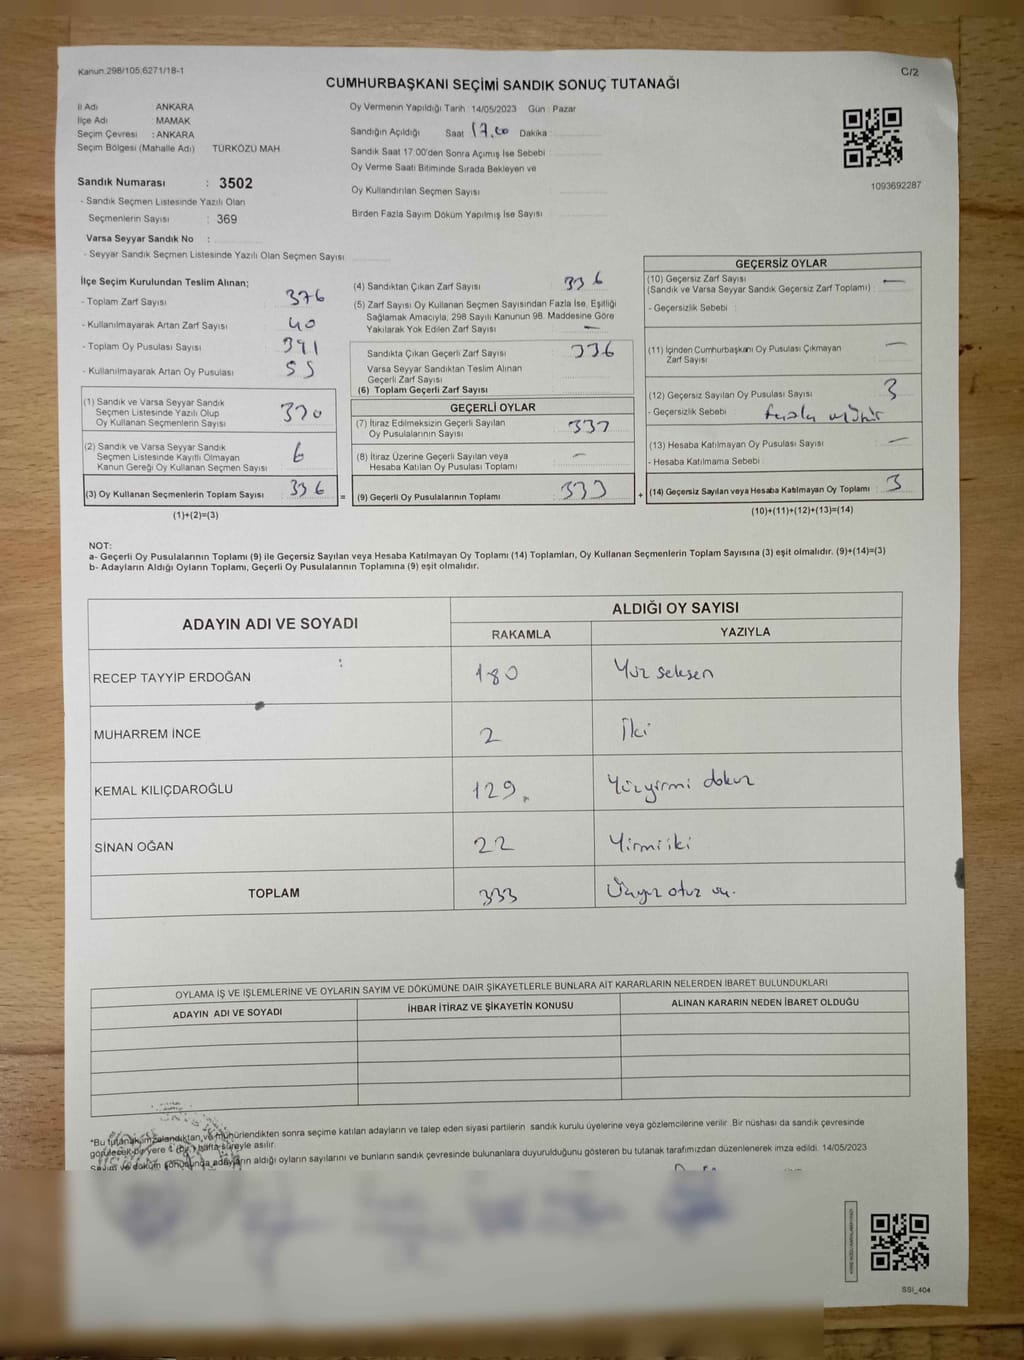 Kanun,298/105,6271/18-1
C/2
CUMHURBAŞKANI SEÇİMİ SANDIK SONUÇ TUTANAĞI
İl Adı ANKARA
İlçe Adı MAMAK
Seçim Çevresi : ANKARA
Seçim Bölgesi (Mahalle Adı) TÜRKÖZÜ MAH
Sandık Numarası : 3502
- Sandık Seçmen Listesinde Yazılı Olan
Seçmenlerin Sayısı : 369
Varsa Seyyar Sandık No :
- Seyyar Sandık Seçmen Listesinde Yazılı Olan Seçmen Sayısı
Oy Vermenin Yapıldığı Tarih 14/05/2023 Gün : Pazar
Sandığın Açıldığı Saat 17.00 Dakika
Sandık Saat 17:00'den Sonra Açımış İse Sebebi
Oy Verme Saati Bitiminde Sırada Bekleyen ve
Oy Kullandırılan Seçmen Sayısı
Birden Fazla Sayım Döküm Yapılmış İse Sayısı
1093692287
İlçe Seçim Kurulundan Teslim Alınan;
- Toplam Zarf Sayısı 376
- Kullanılmayarak Artan Zarf Sayısı 40
- Toplam Oy Pusulası Sayısı 391
- Kullanılmayarak Artan Oy Pusulası 55
(1) Sandık ve Varsa Seyyar Sandık
Seçmen Listesinde Yazılı Olup
Oy Kullanan Seçmenlerin Sayısı 330
(2) Sandık ve Varsa Seyyar Sandık
Seçmen Listesinde Kayıtlı Olmayan
Kanun Gereği Oy Kullanan Seçmen Sayısı 6
(3) Oy Kullanan Seçmenlerin Toplam Sayısı 336 =
(1)+(2)=(3)
(4) Sandıktan Çıkan Zarf Sayısı 336
(5) Zarf Sayısı Oy Kullanan Seçmen Sayısından Fazla İse, Eşitliği
Sağlamak Amacıyla, 298 Sayılı Kanunun 98. Maddesine Göre
Yakılarak Yok Edilen Zarf Sayısı —
Sandıkta Çıkan Geçerli Zarf Sayısı 336
Varsa Seyyar Sandıktan Teslim Alınan
Geçerli Zarf Sayısı
(6) Toplam Geçerli Zarf Sayısı
GEÇERLİ OYLAR
(7) İtiraz Edilmeksizin Geçerli Sayılan
Oy Pusulalarının Sayısı 333
(8) İtiraz Üzerine Geçerli Sayılan veya
Hesaba Katılan Oy Pusulası Toplamı —
(9) Geçerli Oy Pusulalarının Toplamı 333 +
GEÇERSİZ OYLAR
(10) Geçersiz Zarf Sayısı
(Sandık ve Varsa Seyyar Sandık Geçersiz Zarf Toplamı) : —
- Geçersizlik Sebebi :
(11) İçinden Cumhurbaşkanı Oy Pusulası Çıkmayan
Zarf Sayısı —
(12) Geçersiz Sayılan Oy Pusulası Sayısı 3
- Geçersizlik Sebebi fazla mühür
(13) Hesaba Katılmayan Oy Pusulası Sayısı —
- Hesaba Katılmama Sebebi
(14) Geçersiz Sayılan veya Hesaba Katılmayan Oy Toplamı : 3
(10)+(11)+(12)+(13)=(14)
NOT:
a- Geçerli Oy Pusulalarının Toplamı (9) ile Geçersiz Sayılan veya Hesaba Katılmayan Oy Toplamı (14) Toplamları, Oy Kullanan Seçmenlerin Toplam Sayısına (3) eşit olmalıdır. (9)+(14)=(3)
b- Adayların Aldığı Oyların Toplamı, Geçerli Oy Pusulalarının Toplamına (9) eşit olmalıdır.
ADAYIN ADI VE SOYADI
ALDIĞI OY SAYISI
RAKAMLA YAZIYLA
RECEP TAYYİP ERDOĞAN 180 Yüz seksen
MUHARREM İNCE 2 İki
KEMAL KILIÇDAROĞLU 129 Yüzyirmi dokuz
SİNAN OĞAN 22 Yirmiiki
TOPLAM 333 Üçyüz otuz üç.
OYLAMA İŞ VE İŞLEMLERİNE VE OYLARIN SAYIM VE DÖKÜMÜNE DAİR ŞİKAYETLERLE BUNLARA AİT KARARLARIN NELERDEN İBARET BULUNDUKLARI
ADAYIN ADI VE SOYADI İHBAR İTİRAZ VE ŞİKAYETİN KONUSU ALINAN KARARIN NEDEN İBARET OLDUĞU
*Bu tutanak imzalandıktan ve mühürlendikten sonra seçime katılan adayların ve talep eden siyasi partilerin sandık kurulu üyelerine veya gözlemcilerine verilir. Bir nüshası da sandık çevresinde
görülecek bir yere 1 (bir) hafta süreyle asılır.
Sayım ve döküm sonucunda adayların aldığı oyların sayılarını ve bunların sandık çevresinde bulunanlara duyurulduğunu gösteren bu tutanak tarafımızdan düzenlenerek imza edildi. 14/05/2023
SSİ_404